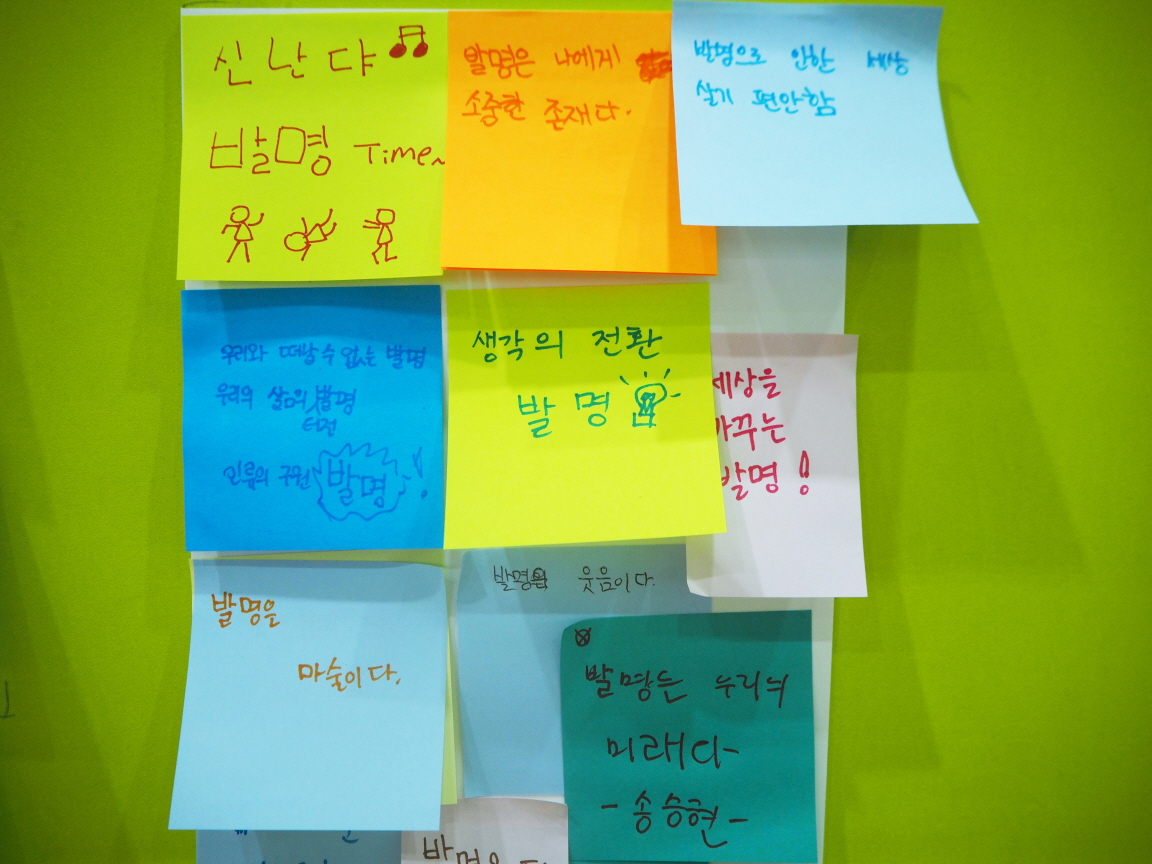 신난댜
발명 Time~
발명은 나에게
소중한 존재다.
발명으로 인한 세상
살기 편안함
우리와 떠날 수 없는 발명
우리의 삶의 발명
터전
인류의 구원 발명!
생각의 전환
발명
세상을
가꾸는
발명!
발명은
마술이다.
발명은 웃음이다.
발명은 우리의
미래다-
-송승현-
발명은